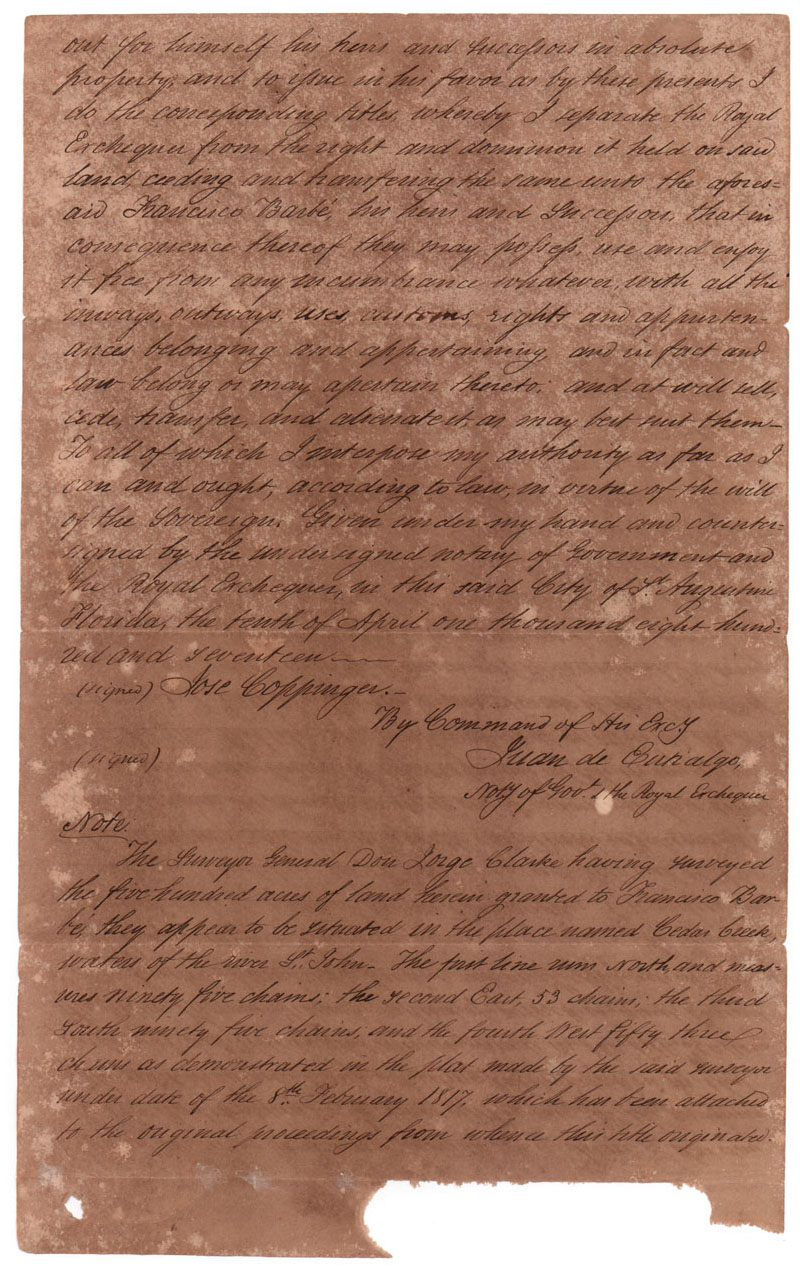 out for himself his heirs and successors in absolute
property, and to issue in his favor as by these presents I
do the corresponding titles, whereby I separate the Royal
Exchequer from the right and dominion it held on said
land, ceeding and transfering the same unto the afores=
aid Francisco Barbé, his heirs and successors, that in
consequence thereof they may possess, use and enjoy
it free from any incumbrance whatever, with all the
inways, outways, uses, customs, rights and appurten=
ances belonging and appertaining, and in fact and
law belong or may apertain thereto; and at will sell,
cede, transfer, and alienate it, as may best suit them—
To all of which I interpose my authority as far as I
can and ought, according to law, in virtue of the will
of the Sovereign. Given under my hand and counter=
signed by the undersigned notary of Government and
the Royal Exchequer, in this said City of St. Augustine
Florida, the tenth of April one thousand eight hund=
red and seventeen—
(signed) Jose Coppinger.—
By Command of His Excy
(signed) Juan de Entralgo,
Noty of Govt. & the Royal Exchequer
Note.
The Surveyor General Don Jorge Clarke having surveyed
the five hundred acres of land herein granted to Francisco Bar=
bé, they appear to be situated in the place named Cedar Creek,
waters of the river St. John— The first line runs North, and meas=
ures ninety five chains; the second East, 53 chains; the third
South ninety five chains, and the fourth West fifty three
chains as demonstrated in the plat made by the said surveyor
under date of the 8th. February 1817. which has been attached
to the original proceedings from whence this title originated.